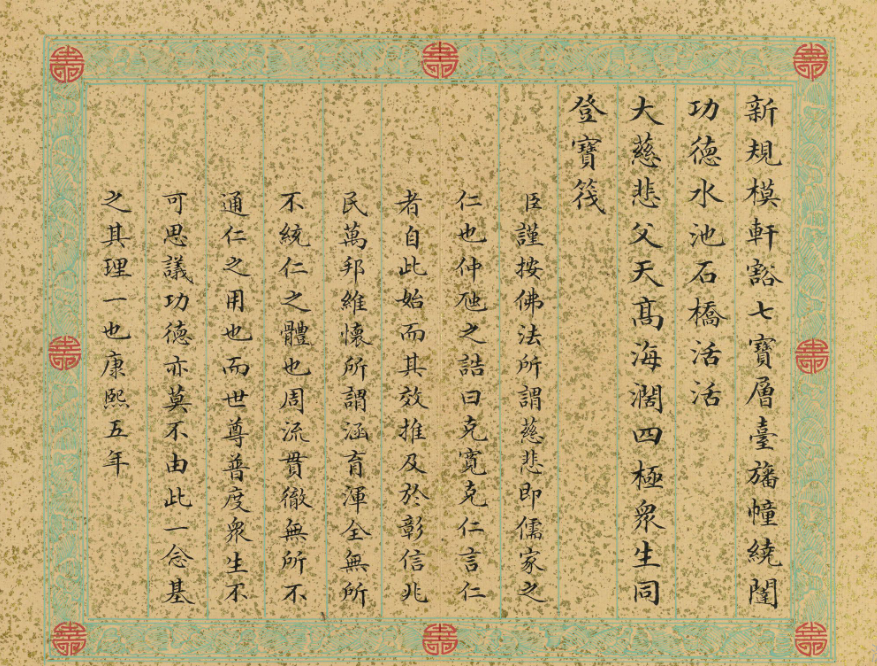 新規模軒豁七寶層臺旛幢繞闥
功德水池石橋活活
大慈悲父天高海濶四極衆生同
登寶筏
臣謹按佛法所謂慈悲即儒家之
仁也仲虺之誥曰克寬克仁言仁
者自此始而其效推及於彰信兆
民萬邦維懷所謂涵育渾全無所
不統仁之體也周流貫徹無所不
通仁之用也而世尊普度衆生不
可思議功德亦莫不由此一念基
之其理一也康熙五年